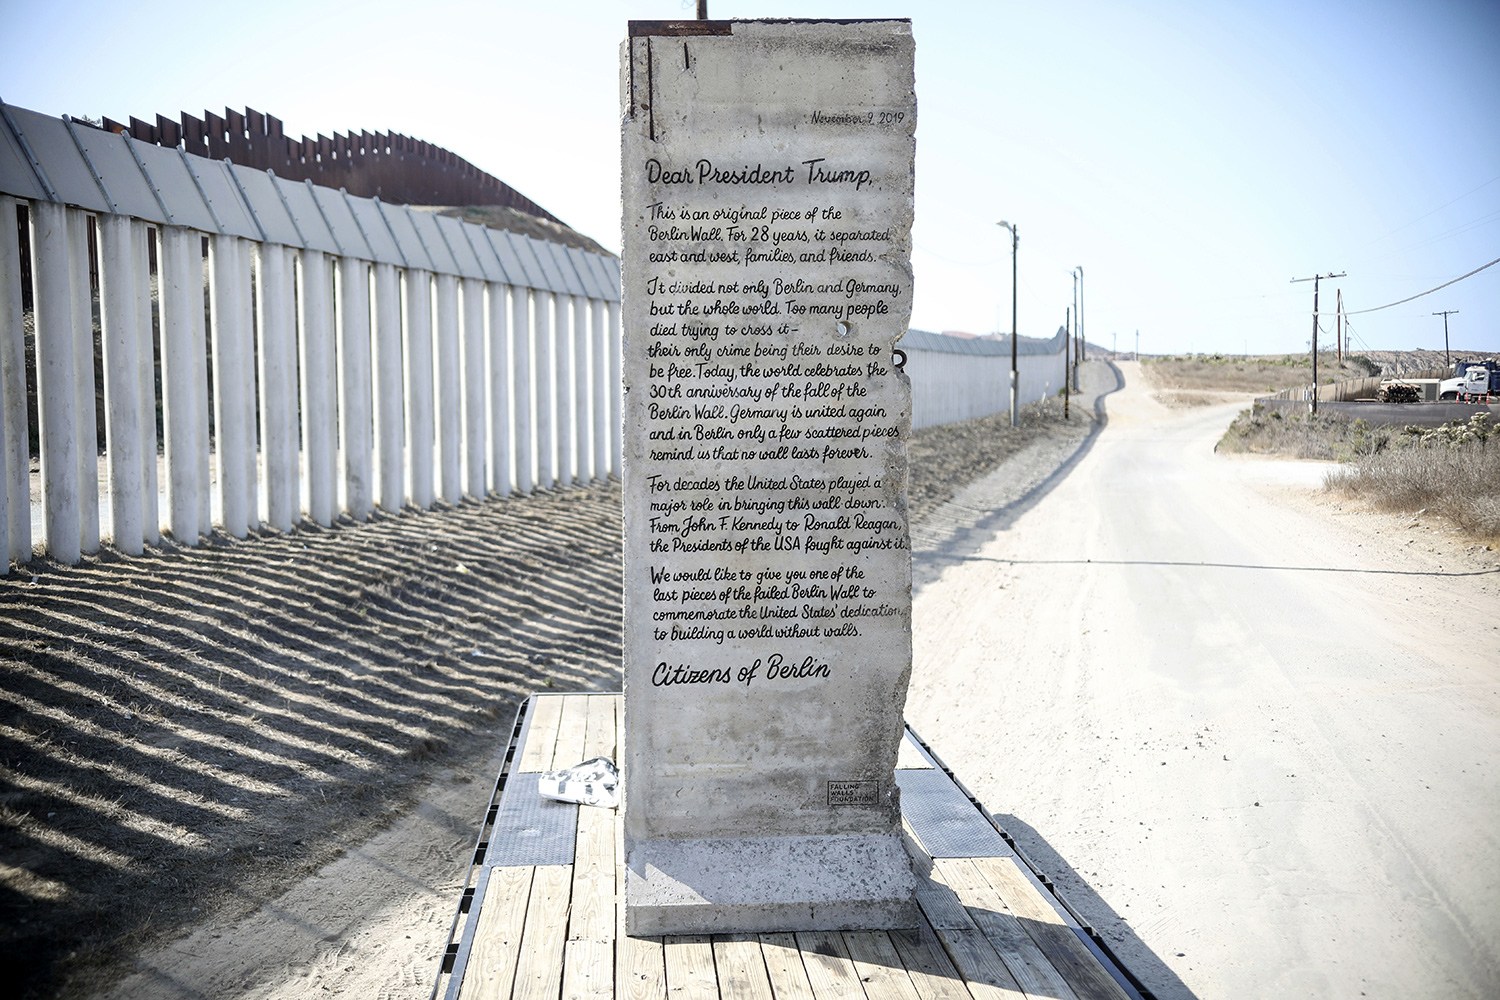 November 9, 2019
Dear President Trump,
This is an original piece of the
Berlin Wall. For 28 years, it separated
east and west, families, and friends.
It divided not only Berlin and Germany,
but the whole world. Too many people
died trying to cross it–
their only crime being their desire to
be free. Today, the world celebrates the
30th anniversary of the fall of the
Berlin Wall. Germany is united again
and in Berlin only a few scattered pieces
remind us that no wall lasts forever.
For decades the United States played a
major role in bringing this wall down.
From John F. Kennedy to Ronald Reagan,
the Presidents of the USA fought against it.
We would like to give you one of the
last pieces of the failed Berlin Wall to
commemorate the United States' dedication
to building a world without walls.
Citizens of Berlin
FALLING
WALLS
FOUNDATION